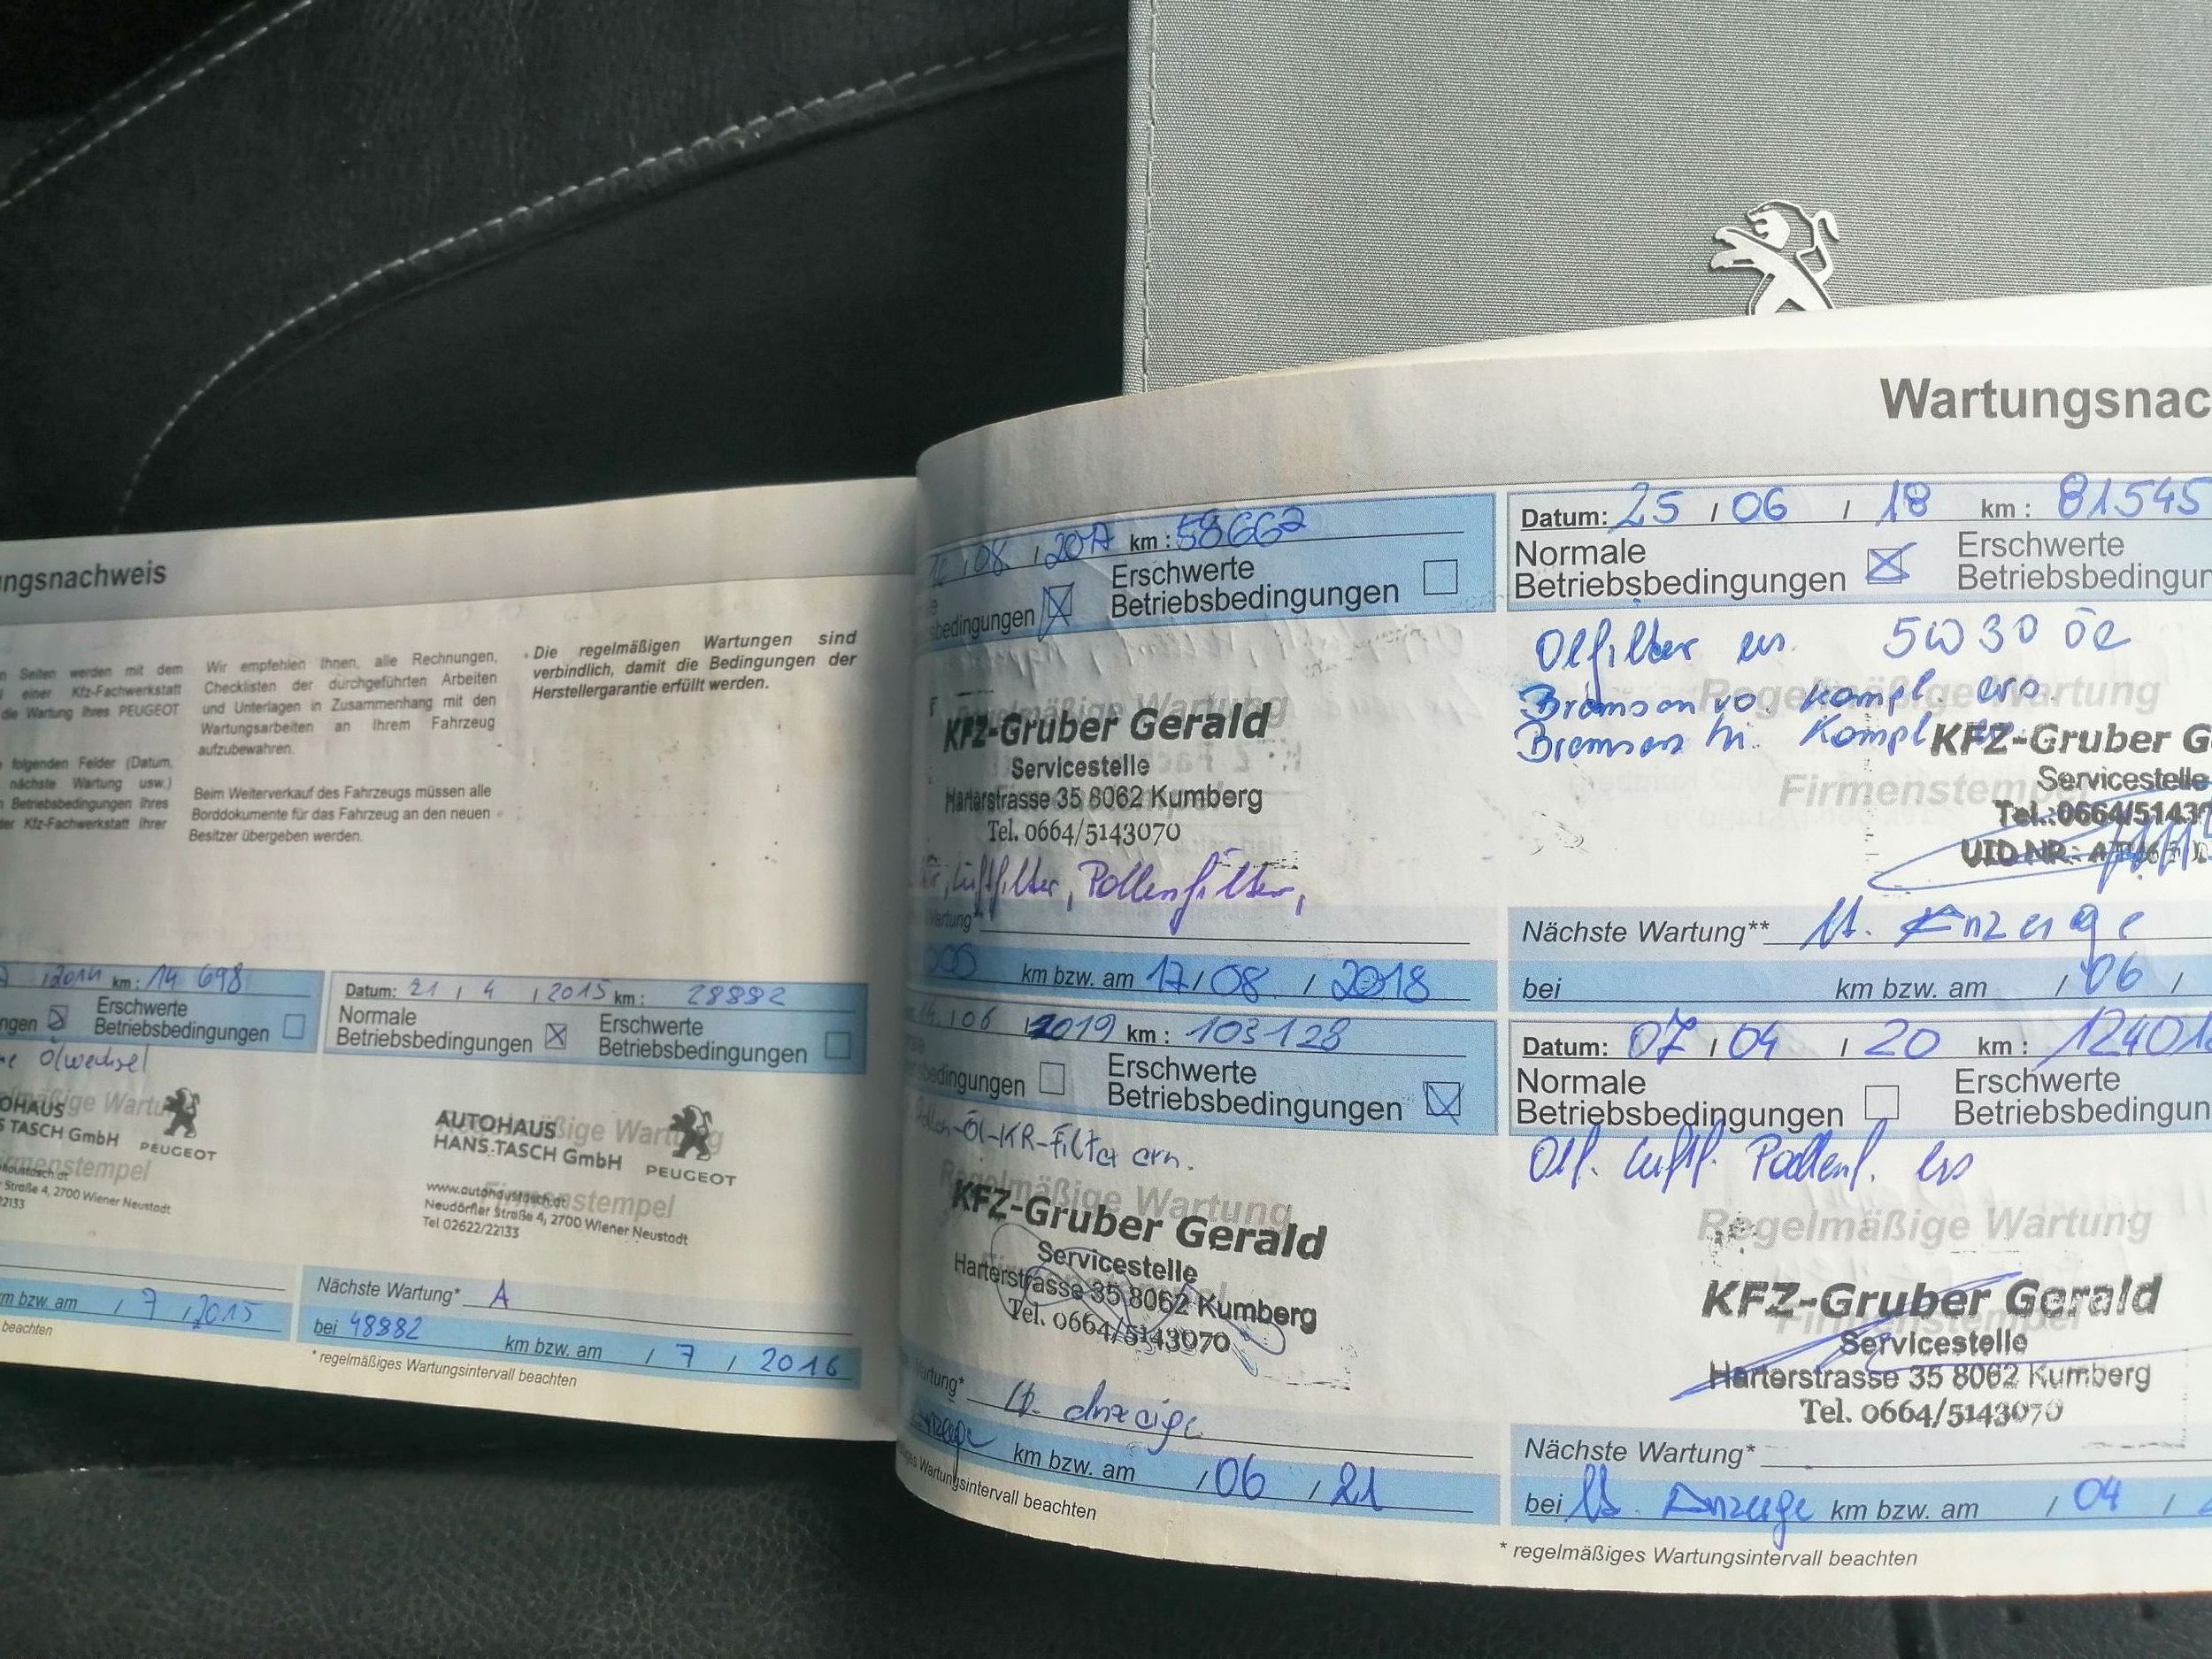 ngsnachweis
n Seiten werden mit dem
einer Kfz-Fachwerkstatt
die Wartung Ihres PEUGEOT
folgenden Felder (Datum,
nächste Wartung usw.)
Betriebsbedingungen Ihres
der Kfz-Fachwerkstatt Ihrer
Wir empfehlen Ihnen, alle Rechnungen,
Checklisten der durchgeführten Arbeiten
und Unterlagen in Zusammenhang mit den
Wartungsarbeiten an Ihrem Fahrzeug
aufzubewahren.
Beim Weiterverkauf des Fahrzeugs müssen alle
Borddokumente für das Fahrzeug an den neuen
Besitzer übergeben werden.
Die regelmäßigen Wartungen sind
verbindlich, damit die Bedingungen der
Herstellergarantie erfüllt werden.
/2014 km: 14 698
ngen Erschwerte
Betriebsbedingungen
Ölwechsel
elmäßige Wartu
OHAUS
S TASCH GmbH PEUGEOT
rmenstempel
Straße 4, 2700 Wiener Neustadt
22133
m bzw. am / 7 / 2015
beachten
Datum: 21 / 4 / 2015 km: 28882
Normale
Betriebsbedingungen
Erschwerte
Betriebsbedingungen
AUTOHAUS
HANS TASCH GmbH PEUGEOT
www.autohaustasch.at
Firmenstempel
Neudörfler Straße 4, 2700 Wiener Neustadt
Tel 02622/22133
Nächste Wartung* A
bei 48882 km bzw. am / 7 / 2016
* regelmäßiges Wartungsintervall beachten
Wartungsnac
/ 08 / 2017 km: 58662
sbedingungen
Erschwerte
Betriebsbedingungen
Regelmäßige Wartung
KFZ-Gruber Gerald
Servicestelle
Harterstrasse 35 8062 Kumberg
Tel. 0664/5143070
Luftfilter, Pollenfilter,
Wartung*
000 km bzw. am 17/ 08 / 2018
Datum: 25 / 06 / 18 km: 81545
Normale
Betriebsbedingungen
Erschwerte
Betriebsbedingun
Ölfilter 5W30 Öl
Bremsen vo. kompl. ers.
Bremsen hi. Kompl
Regelmäßige Wartung
KFZ-Gruber G
Servicestelle
Firmenstempel
Tel.:0664/5143
UID NR.:
Nächste Wartung** lt. Anzeige
bei km bzw. am / 06 /
14. / 06 / 2019 km: 103128
bedingungen
Erschwerte
Betriebsbedingungen
Pollen-Öl-KR-Filter ern.
Regelmäßige Wartung
KFZ-Gruber Gerald
Servicestelle
Harterstrasse 35 8062 Kumberg
Tel. 0664/5143070
Wartung* lt. Anzeige
km bzw. am / 06 / 21
Wartungsintervall beachten
Datum: 07 / 04 / 20 km: 12401
Normale
Betriebsbedingungen
Erschwerte
Betriebsbedingun
Ölf. Luftf. Pollenf. ers
Regelmäßige Wartung
KFZ-Gruber Gerald
Firmenstempel
Servicestelle
Harterstrasse 35 8062 Kumberg
Tel. 0664/5143070
Nächste Wartung*
bei lt. Anzeige km bzw. am / 04 /
* regelmäßiges Wartungsintervall beachten